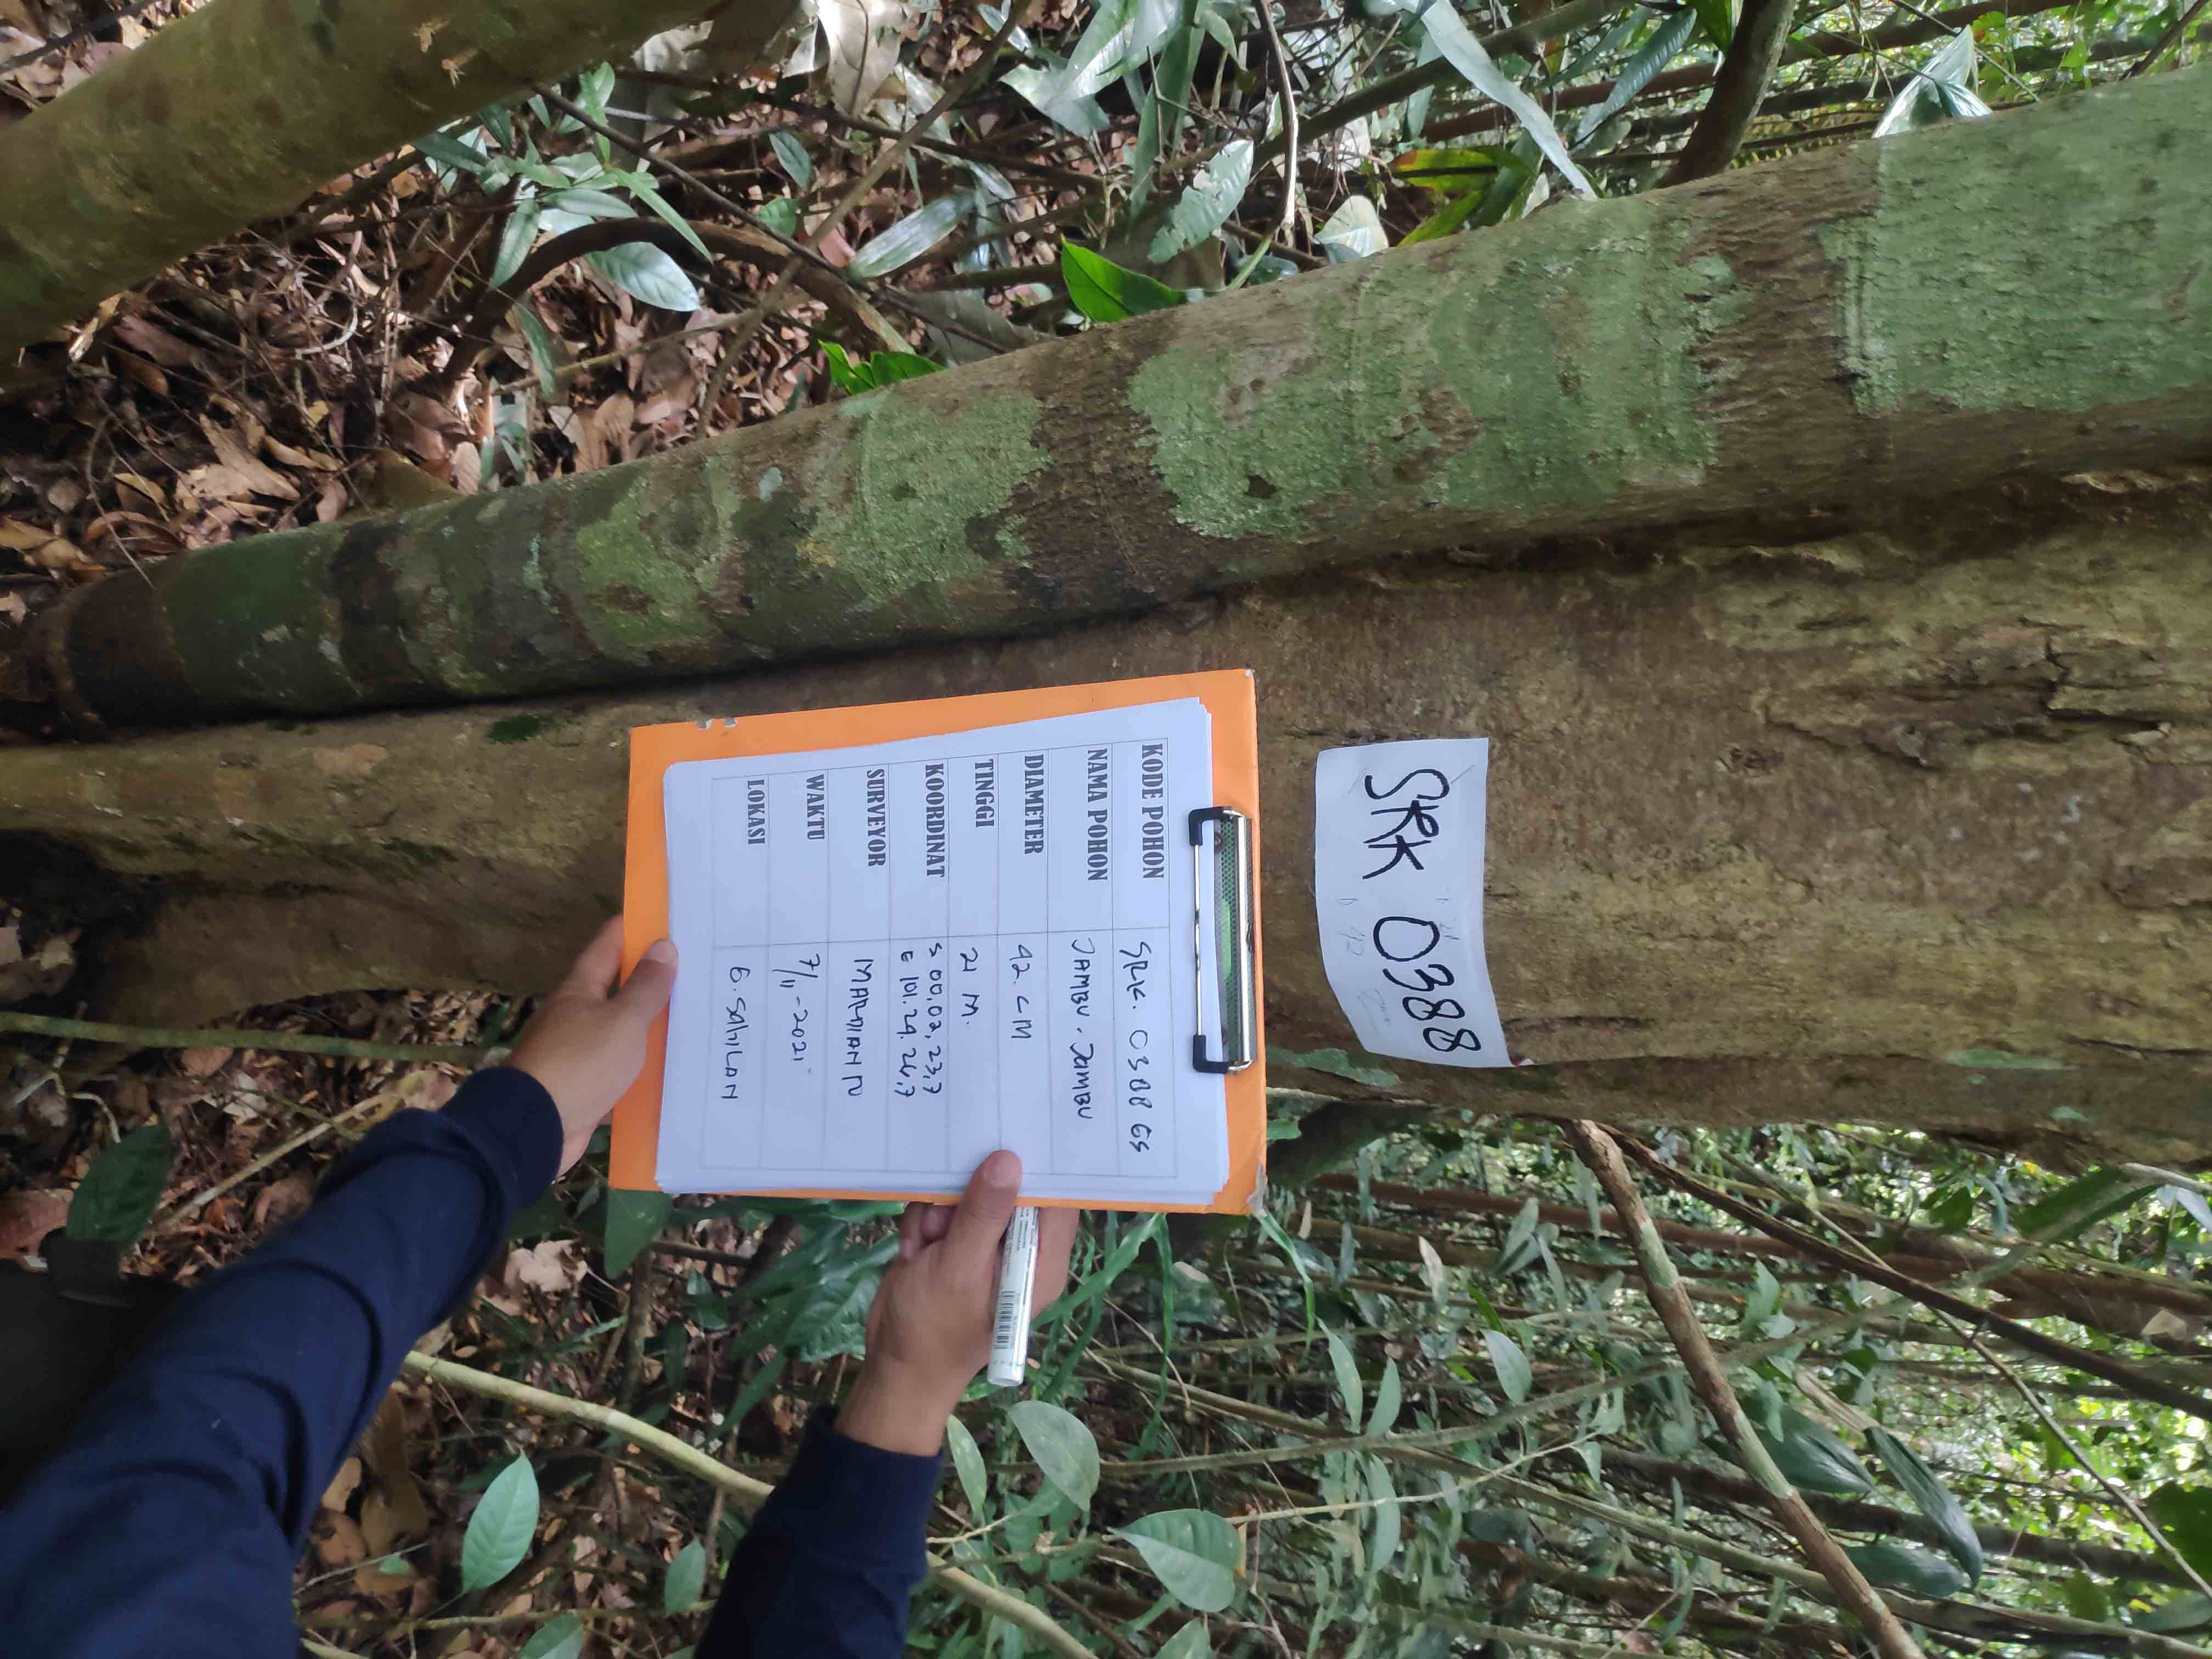 SRK 0388
KODE POHON SRK. 0388 GS
NAMA POHON JAMBU-JAMBU
DIAMETER 42. CM
TINGGI 21 M.
KOORDINAT S 00.02.23,7
E 101.24.26,7
SURVEYOR MARDIANN
WAKTU 7/11-2021
LOKASI G. SAHILAN